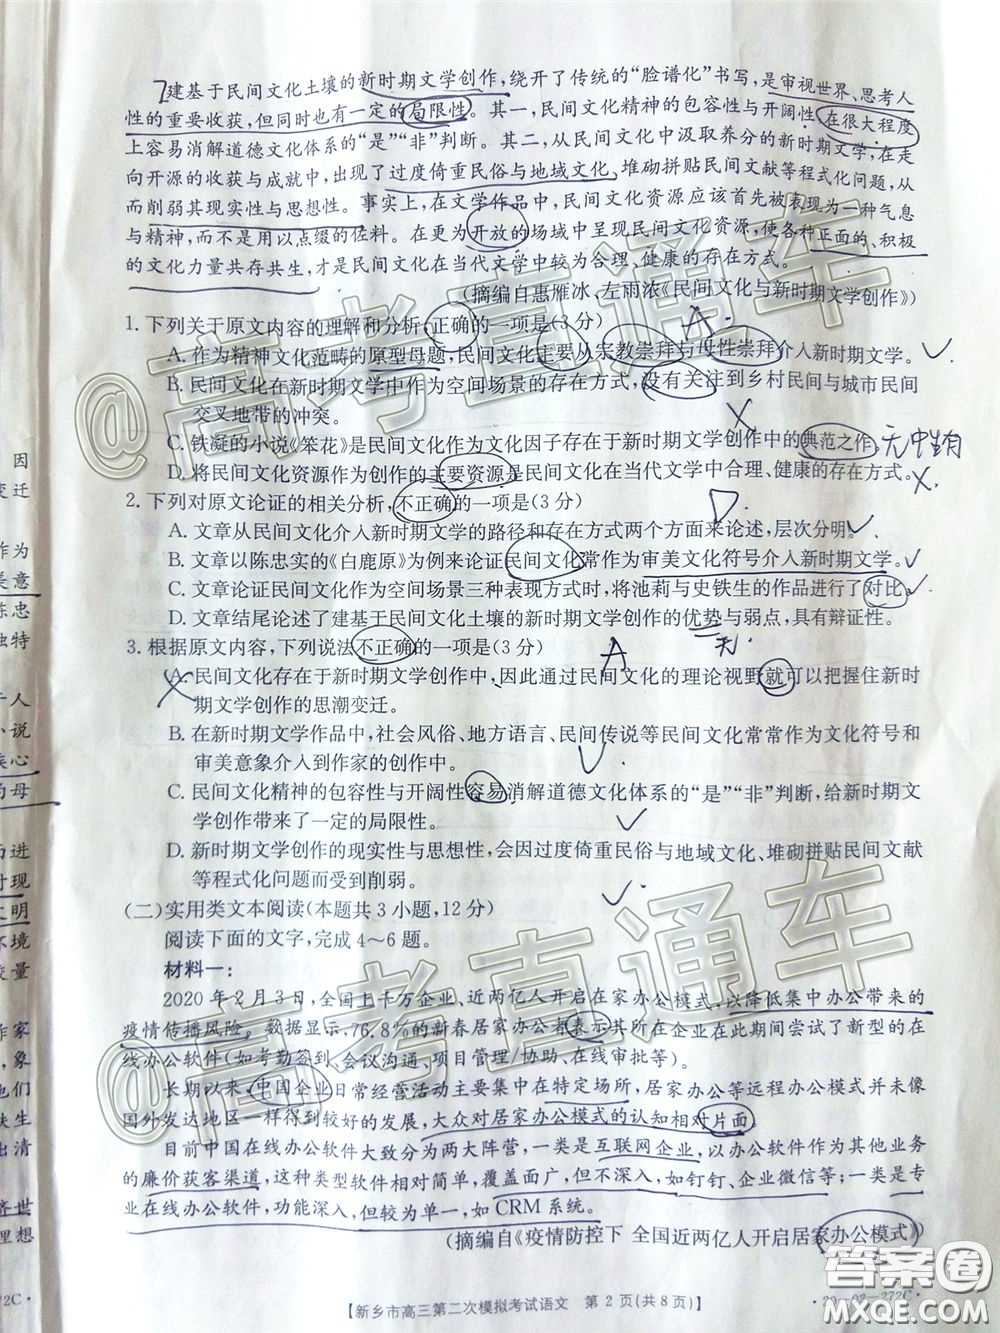 建基于民间文化土壤的新时期文学创作,绕开了传统的“脸谱化”书写,是审视世界、思考人
性的重要收获,但同时也有一定的局限性。其一,民间文化精神的包容性与开阔性,在很大程度
上容易消解道德文化体系的“是”“非”判断。其二,从民间文化中汲取养分的新时期文学,在走
向开源的收获与成就中,出现了过度倚重民俗与地域文化、堆砌拼贴民间文献等程式化问题,从
而削弱其现实性与思想性。事实上,在文学作品中,民间文化资源应该首先被表现为一种气息
与精神,而不是用以点缀的佐料。在更为开放的场域中呈现民间文化资源,使各种正面的、积极
的文化力量共存共生,才是民间文化在当代文学中较为合理、健康的存在方式。
(摘编自惠雁冰、左雨浓《民间文化与新时期文学创作》)
1. 下列关于原文内容的理解和分析,正确的一项是(3 分)
A
A. 作为精神文化范畴的原型母题,民间文化主要从宗教崇拜与母性崇拜介入新时期文学。
B. 民间文化在新时期文学中作为空间场景的存在方式,没有关注到乡村民间与城市民间
交叉地带的冲突。
C. 铁凝的小说《笨花》是民间文化作为文化因子存在于新时期文学创作中的典范之作。
无中生有
D. 将民间文化资源作为创作的主要资源是民间文化在当代文学中合理、健康的存在方式。
2. 下列对原文论证的相关分析,不正确的一项是(3 分)
D
A. 文章从民间文化介入新时期文学的路径和存在方式两个方面来论述,层次分明。
B. 文章以陈忠实的《白鹿原》为例来论证民间文化常作为审美文化符号介入新时期文学。
C. 文章论证民间文化作为空间场景三种表现方式时,将池莉与史铁生的作品进行了对比。
D. 文章结尾论述了建基于民间文化土壤的新时期文学创作的优势与弱点,具有辩证性。
3. 根据原文内容,下列说法不正确的一项是(3 分)
A
A. 民间文化存在于新时期文学创作中,因此通过民间文化的理论视野就可以把握住新时
期文学创作的思潮变迁。
B. 在新时期文学作品中,社会风俗、地方语言、民间传说等民间文化常常作为文化符号和
审美意象介入到作家的创作中。
C. 民间文化精神的包容性与开阔性容易消解道德文化体系的“是”“非”判断,给新时期文
学创作带来了一定的局限性。
D. 新时期文学创作的现实性与思想性,会因过度倚重民俗与地域文化、堆砌拼贴民间文献
等程式化问题而受到削弱。
(二)实用类文本阅读(本题共 3 小题,12 分)
阅读下面的文字,完成 4～6 题。
材料一:
2020 年 2 月 3 日,全国上千万企业、近两亿人开启在家办公模式,以降低集中办公带来的
疫情传播风险。数据显示,76.8%的新春居家办公者表示其所在企业在此期间尝试了新型的在
线办公软件(如考勤签到、会议沟通、项目管理/协助、在线审批等)。
长期以来,中国企业日常经营活动主要集中在特定场所,居家办公等远程办公模式并未像
国外发达地区一样得到较好的发展,大众对居家办公模式的认知相对片面。
目前中国在线办公软件大致分为两大阵营,一类是互联网企业,以办公软件作为其他业务
的廉价获客渠道,这种类型软件相对简单,覆盖面广,但不深入,如钉钉、企业微信等;一类是专
业在线办公软件,功能深入,但较为单一,如 CRM 系统。
(摘编自《疫情防控下 全国近两亿人开启居家办公模式》)
【新乡市高三第二次模拟考试语文 第 2 页(共 8 页)】
·20-02-272C·
因
变迁
作为
美意
陈忠
独特
人
小说
族心
的母
而进
时现
文明
环境
较量
作家
,象
他们
失生
出清
济世
理想
72C·
@高考直通车
@高考直通车
答案圈
MXQE.COM